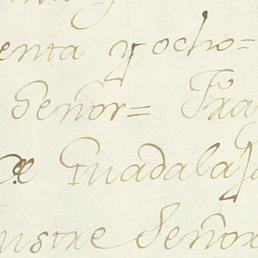 enta y ocho=
Señor= Fra
de Guadalaj
ustre Señor